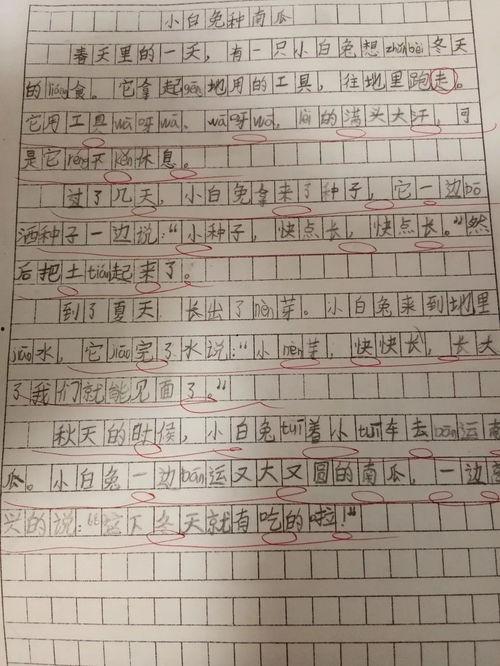 小白兔种南瓜
春天里的一天，有一只小白兔想zhǔnbèi冬天
的liáng食。它拿起gēng地用的工具，往地里跑走。
它用工具wā呀wā，wā呀wā，lèi的满头大汗，可
是它réng不kěn休息。
过了几天，小白兔拿来了种子，它一边bō
洒种子一边说：“小种子，快点长，快点长。”然
后把土tián起来了。
到了夏天 长出了nèn芽。小白兔来到地里
jiāo水，它jiāo完了水说：“小nèn芽，快快长，长大
了我们就能见面了。”
秋天的时候，小白兔tuī着小tuī车去bān运南
瓜。小白兔一边bān运又大又圆的南瓜，一边高
兴的说：“这下冬天就有吃的啦！”